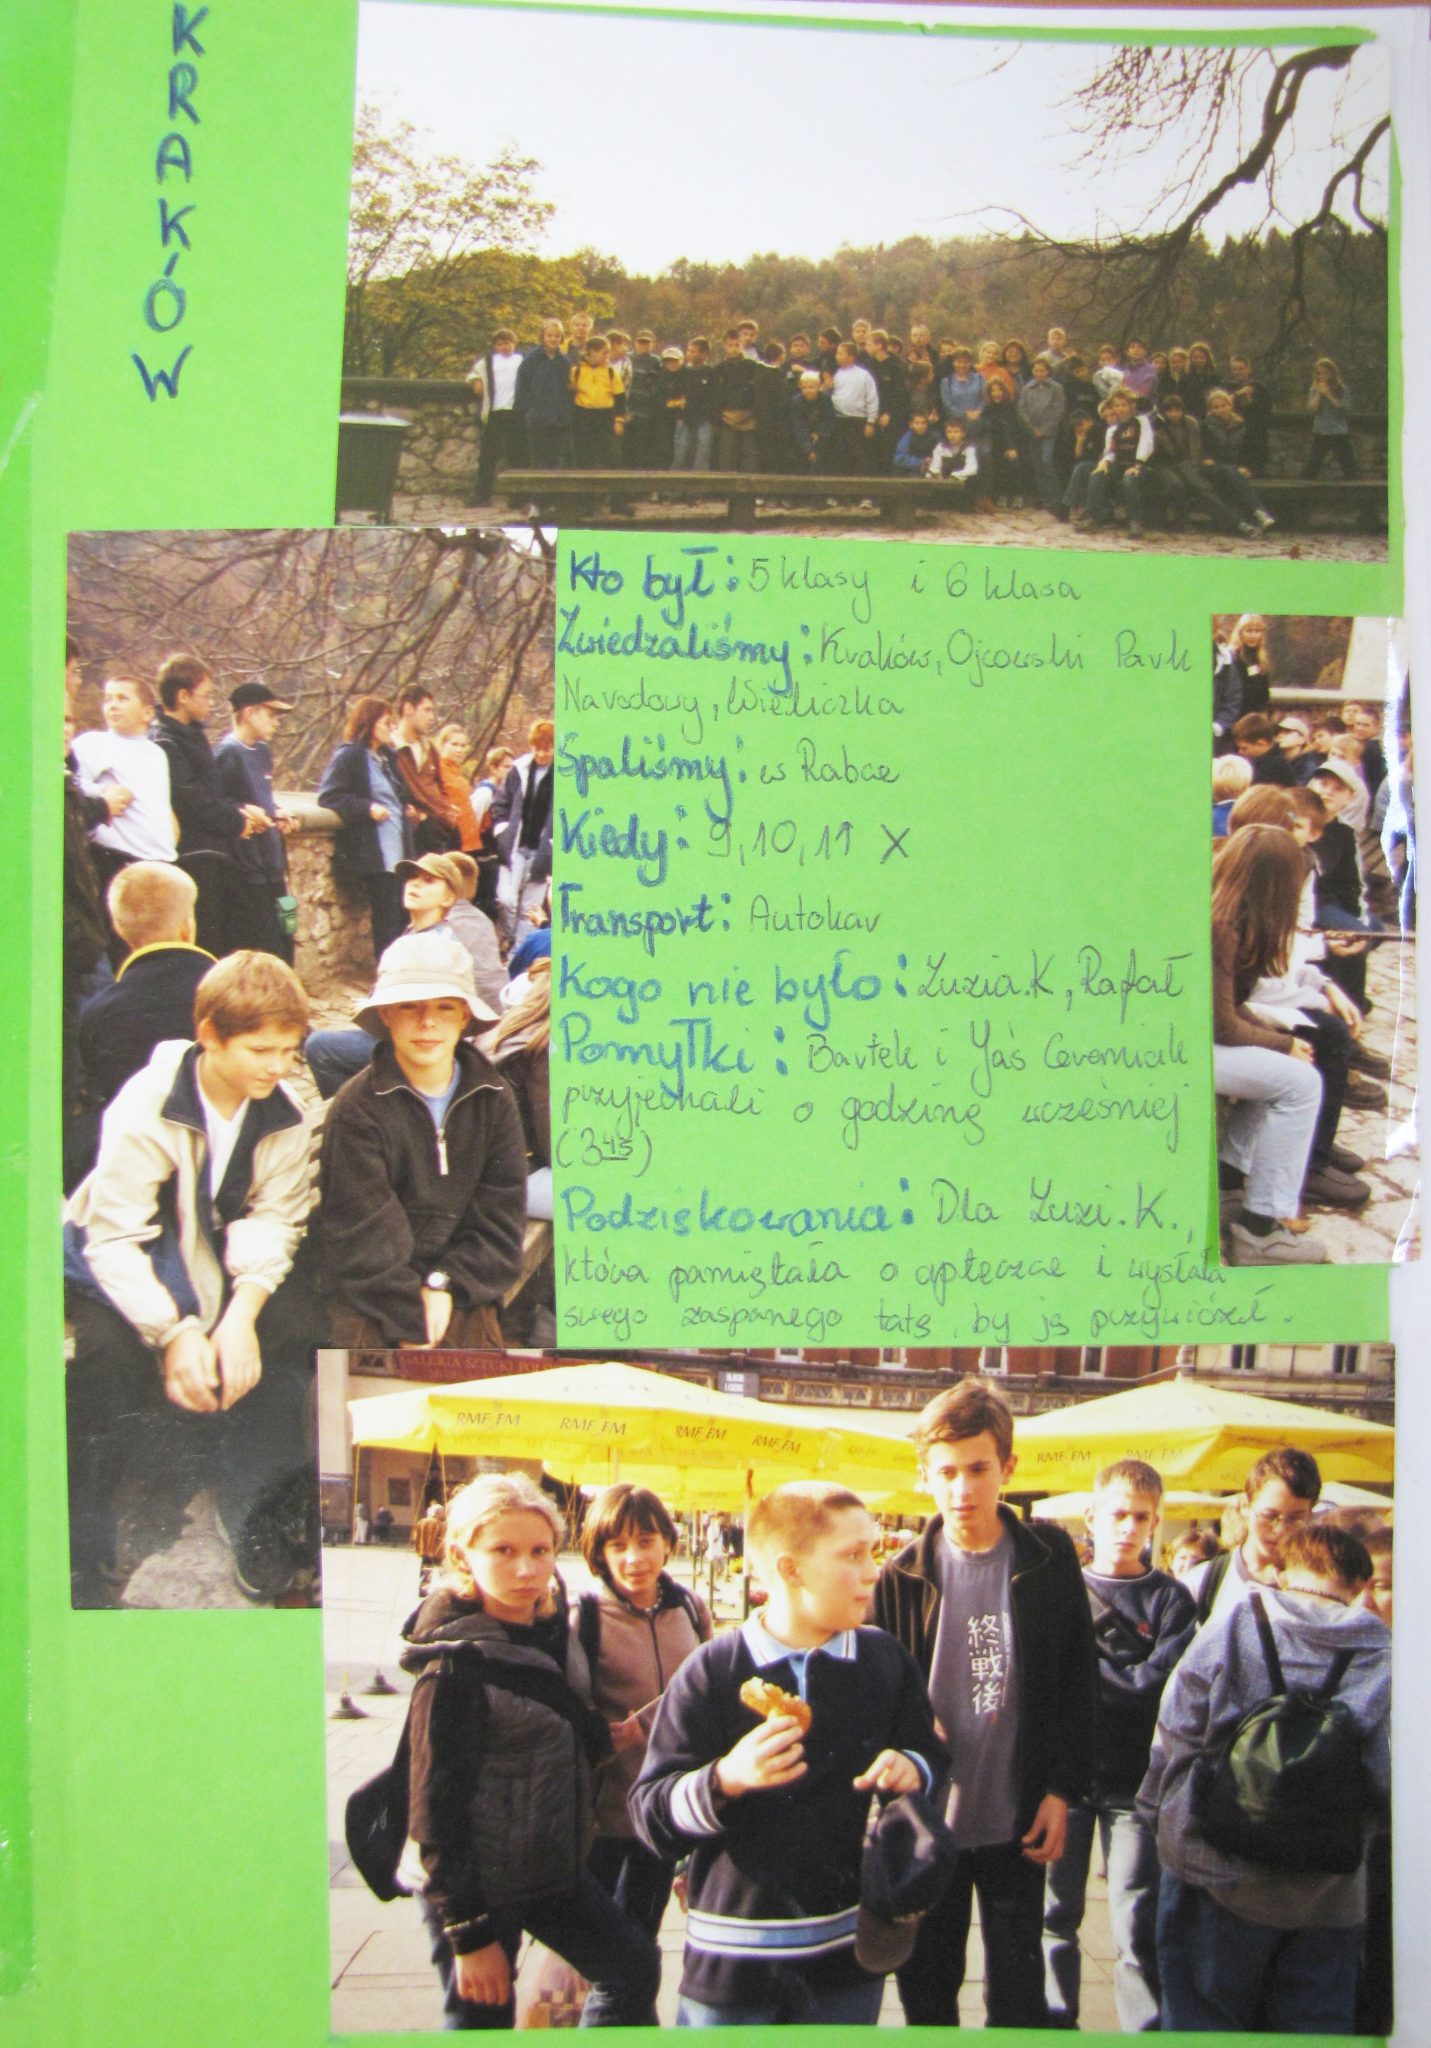 KRAKÓW
Kto był: 5 klasy i 6 klasa
Zwiedzaliśmy: Kraków, Ojcowski Park
Narodowy, Wieliczka
Spaliśmy: w Rabce
Kiedy: 9,10,11 X
Transport: Autokar
Kogo nie było: Zuzia.K, Rafał
Pomyłki: Bartek i Jaś Ceromiak
przyjechali o godzinę wcześniej
(3 45)
Podziękowania: Dla Zuzi.K.,
która pamiętała o apteczce i wysłała
swego zaspanego tatę, by ją przywiózł.
GALERIA SZTUKI POLSKIEJ
RMF FM RMF FM RMF FM RMF FM RMF FM RMF FM
終戦後